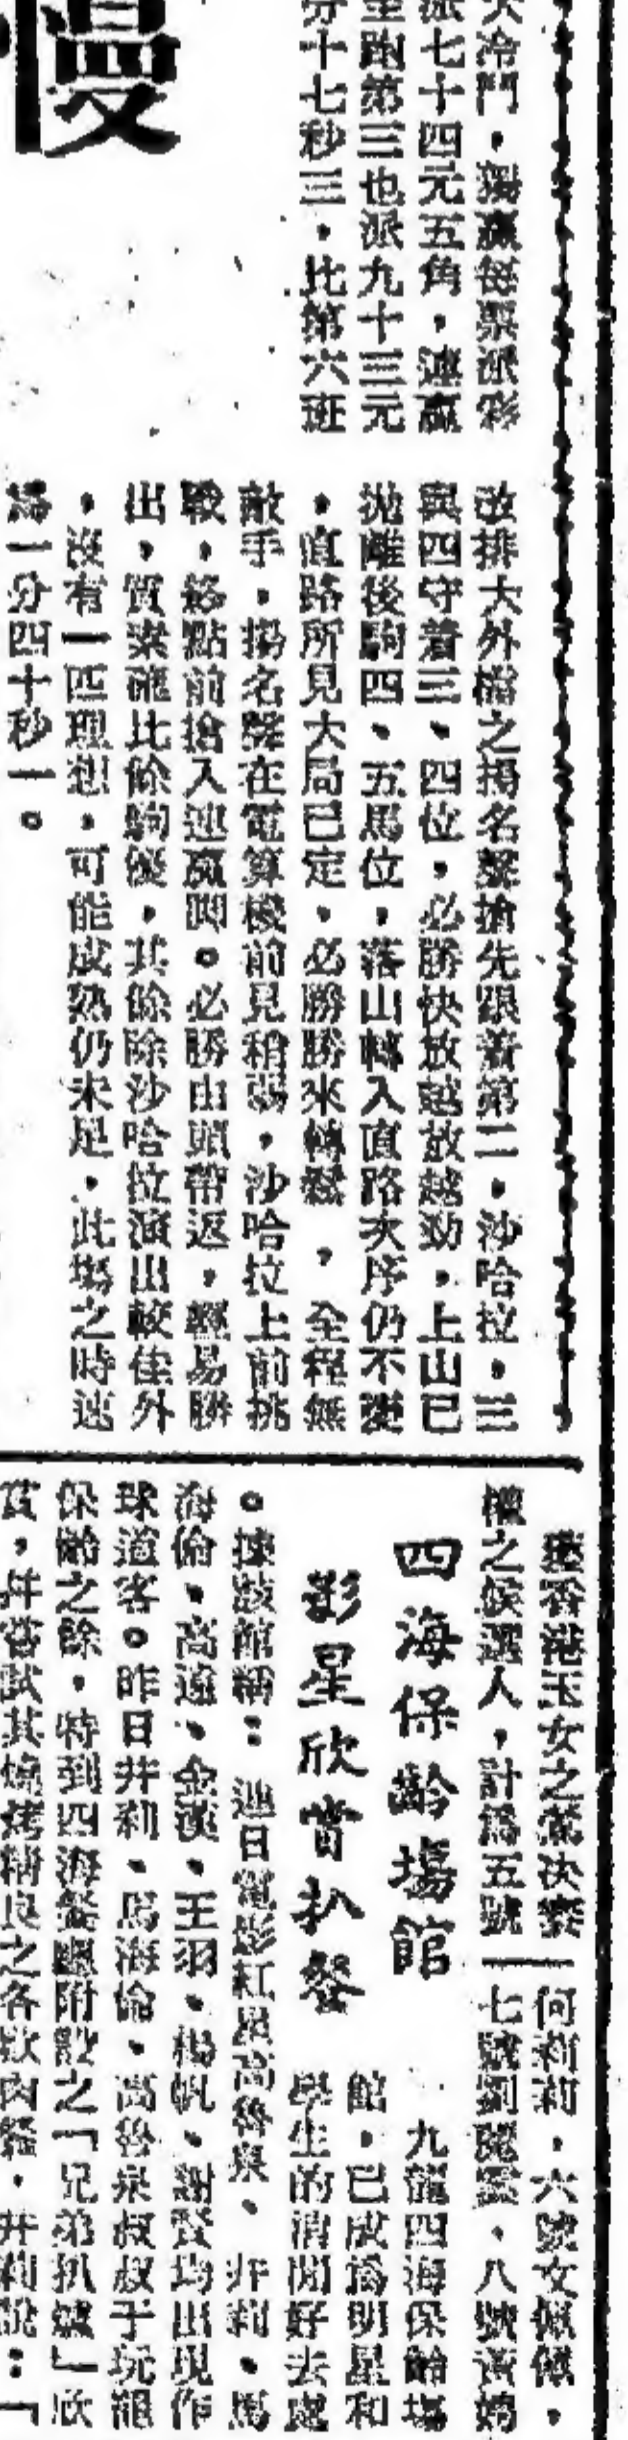 大冷門，獨贏每票派彩
派七十四元五角，連贏
跑第三也派九十三元
分十七秒三，比第六班
慢
改排大外檔之揚名聲搶先跟着第二，沙哈拉，三
與四守着三、四位，必勝快放越放越勁，上山已
拋離後駒四、五馬位，落山轉入直路次序仍不變
，直路所見大局已定，必勝勝來轉鬆，全程無
敵手，揚名聲在電算機前見稍弱，沙哈拉上前挑
戰，終點前搶入連贏閘。必勝由頭帶返，輕易勝
出，質素確比餘駒優，其餘除沙哈拉演出較佳外
，沒有一匹理想，可能成熟仍未足，此場之時速
為一分四十秒一。
選香港玉女之蔴決賽
權之候選人，計為五號
何莉莉，六號文佩佩，
七號劉麗雲，八號黃嫣
四海保齡場館
影星欣賞扒餐
九龍四海保齡場
館，已成為明星和
學生的消閒好去處
。據該館稱：連日電影紅星高魯泉、井莉、馬
海倫、高遠、金漢、王羽、楊帆、謝賢均出現作
球道客。昨日井莉、馬海倫、高魯泉叔叔于玩罷
保齡之餘，特到四海餐廳附設之「兄弟扒爐」欣
賞，并嘗試其燒烤精良之各款肉餐，井莉說：「